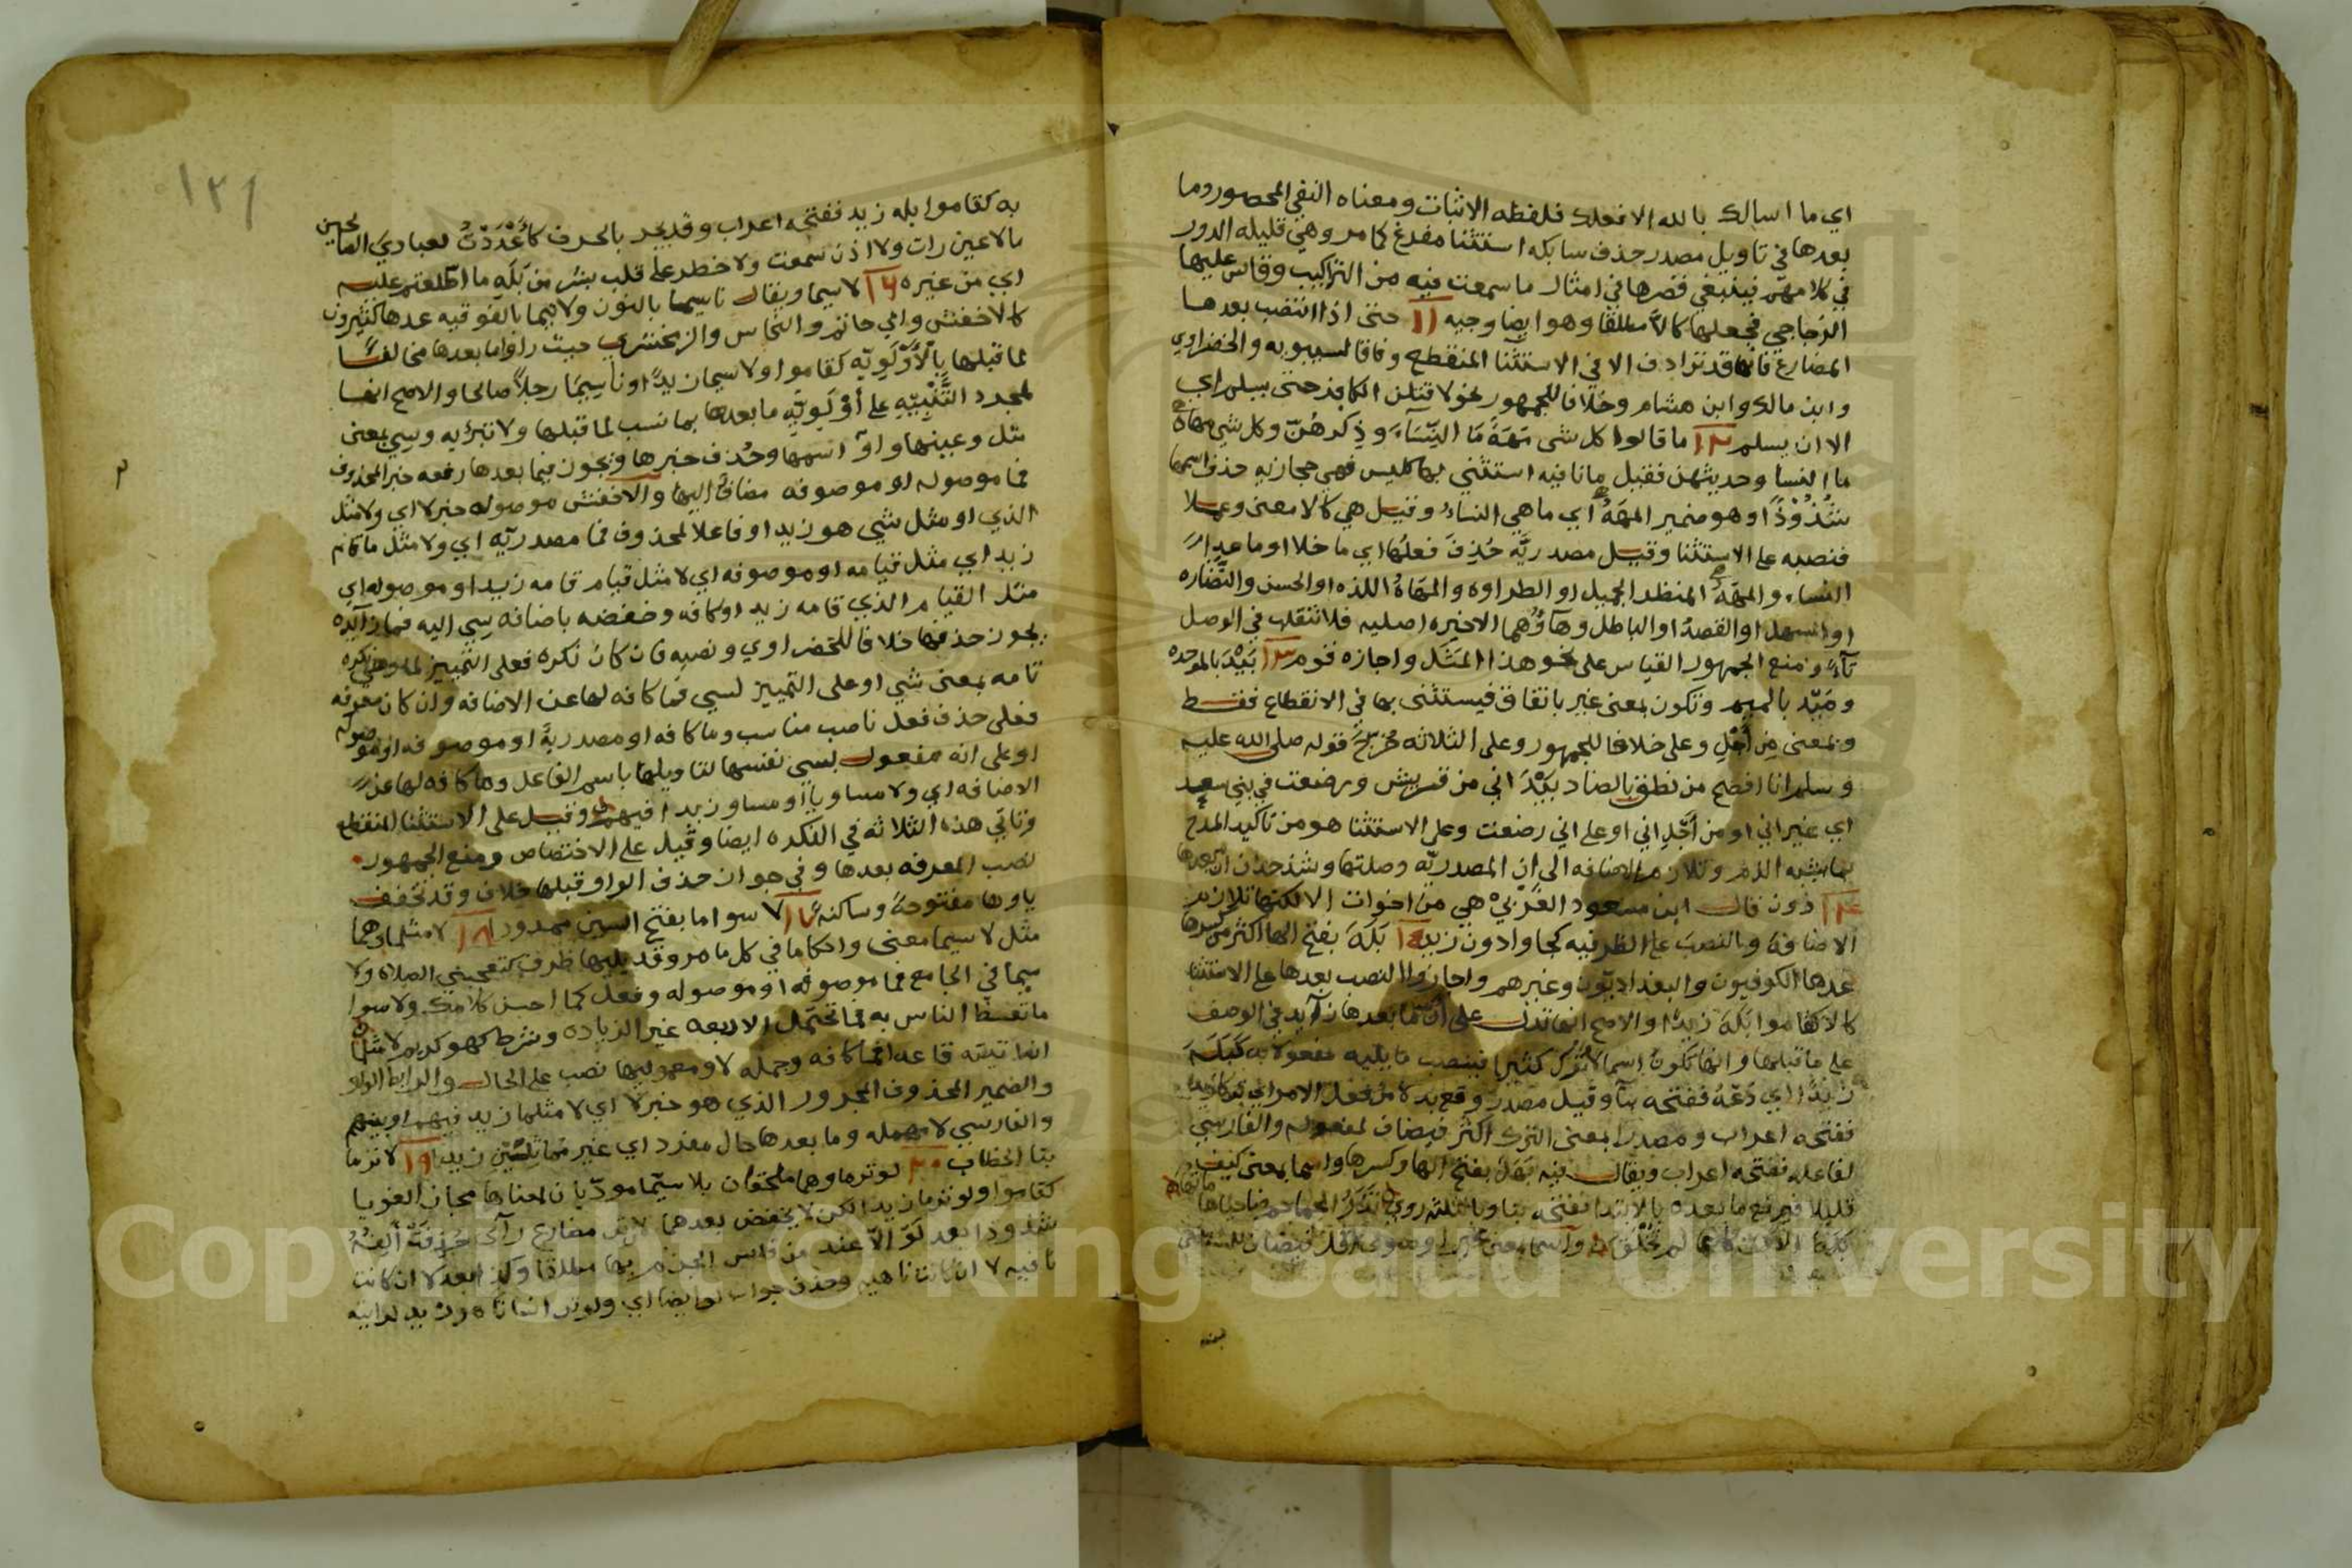 اي ما اسالك بالله الا فعلك فلفظه الاثبات ومعناه النفي المحصور وما
بعدها في تاويل مصدر حذف سابكه استثنا مفرغ كما مر وهي قليله الدور
في كلامهم فينبغي قصرها في امثال ما سمعت فيه من التراكيب وقاس عليها
الزجاجي فجعلها كالا مطلقا وهو ايضا وجيه ١١ حتى اذا انتصب بعدها
المضارع فانها قد ترادف الا في الاستثنا المنقطع وفاقا لسيبويه والخضراوي
وابن مالك وابن هشام وخلافا للجمهور نحو لاقتلن الكافر حتى يسلم اي
الا ان يسلم ١٢ ما قالوا كل شي مَهَهٌ مَا النِّسَاءَ وذِكرهُنّ وكل شي مهاه
ما النسا وحديثهن فقيل ما نافيه استثني بها كليس فهي حجازيه حذف اسمها
شُذُوْذًا وهو ضمير المهَهُ اي ما هي النساءَ وقيل هي كالا معنى وعملا
فنصبه على الاستثنا وقيل مصدريَّه حُذِفَ فعلُها اي ما خلا او ما عدا
النساء والمهَهُ المنظر الجميل او الطراوه والمَهَاهُ اللذه او الحسن والنَّضاره
او السهل او القصدُ او الباطل وهاؤُهما الاخيره اصليه فلا تنقلب في الوصل
تاءً ومنع الجمهور القياس على نحو هذا المَثَل واجازه قوم ١٣ بَيْدَ بالموحده
ومَيْد بالميم وتكون بمعنى غير باتفاق فيستثنى بها في الانقطاع فقط
وبمعنى مِن أجْلِ وعلى خلافا للجمهور وعلى الثلاثه خرج قوله صلى الله عليه
وسلم انا افصح من نطق بالضاد بَيْدَ اني من قريش ورضعت في بني سعد
اي غير اني او من أجْلِ اني او على اني رضعت وعلى الاستثنا هو من تاكيد المدح
بما يشبه الذم وتلازم الاضافه الى ان المصدريّه وصلتها وشذ حذف ان بعدها
١٤ دون قال ابن مسعود الغَزِّيّ هي من اخوات الا لكنها تلازم
الاضافة وبالنصب على الظرفيه كجاوا دون زيد ١٥ بَلَهَ بفتح الها اكثر من كسرها
عدها الكوفيون والبغداديّون وغيرهم واجازوا النصب بعدها على الاستثنا
كالا كقاموا بَلَهَ زيدًا والاصح انها تدل على أن ما بعدها زايد في الوصف
على ما قبلها وانها تكون اسما لاُتْرُكْ كثيرا فينصب ما يليه مفعولا به كَبَلهَ
زيدًا اي دَعْهُ ففتحه بنا وقيل مصدر وقع بدلا من فعل الامر اي تركا زيدا
ففتحه اعراب ومصدرا بمعنى الترك اكثر فيضاف لمفعوله والفارسي
لفاعله ففتحه اعراب ويقال فيه بَهَلَ بفتح الها وكسرها واسما بمعنى كيف
قليلا فيرفع ما بعده بالابتدا ففتحه بنا وبالثلثه روي تَذَرُ الجماجم ضاحيا هاماتها
بَلْهَ الاكف كانها لم تُخْلَقِ
١٢١
به كقاموا بله زيد ففتحه اعراب وقد يجر بالحرف كأَعْدَدْتُ لعبادي الصالحين
ما لا عين رات ولا اذن سمعت ولا خطر على قلب بشر من بَلَهِ ما اطلعتم عليه
اي من غيره ١٦ لا سيما ويقال ناسيما بالنون ولا تيما بالفوقيه عدها كثيرون
كالاخفش وابي حاتم والنحاس والزمخشري حيث راوا ما بعدها مخالفًا
لما قبلها بالأَوْلَوِيّه كقاموا ولا سيما زيدًا او ناسِيمَا رجلاً صالحا والاصح انها
لمجرد التَّنْبِيْهِ على أوْلَويّه ما بعدها بما نسب لما قبلها ولا تبرئيه وسِي بمعنى
مثل وعينها واوٌ اسمها وحُذف خبرها ويجوز فيما بعدها رفعه خبر المحذوف
فما موصوله او موصوفه مضافًا اليها والاخفش موصوله خبر لا اي ولا مثل
الذي او مثل شي هو زيد او فاعلا لمحذوف فما مصدريّه اي ولا مثل ما قام
زيد اي مثل قيامه او موصوفه اي لا مثل قيام قامه زيد او موصوله اي
مثل القيام الذي قامه زيد او كافه وخفضه باضافه سِي اليه فما زايده
يجوز حذفها خلافا للخضراوي ونصبه فان كان نكره فعلى التمييز لما وهي نكره
تامه بمعنى شي او على التمييز لسي فما كافه لها عن الاضافه وان كان معرفه
فعلى حذف فعل ناصب مناسب وما كافه او مصدريةً او موصوفه او موصوله
او على انه مفعول لسي نفسها لتاويلها باسم الفاعل وما كافه لها عن
الاضافه اي ولا مساويا او مساو زيدا فيهم وقيل على الاستثنا المنقطع
وتاتي هذه الثلاثه في النكره ايضا وقيل على الاختصاص ومنع الجمهور
نصب المعرفه بعدها وفي جواز حذف الواو قبلها خلاف وقد تخفف
ياوها مفتوحةً وساكنه ١٧ لا سوا ما بفتح السين ممدودا ١٨ لا مثلما وهما
مثل لا سيما معنى واحكاما في كل ما مر وقد يليها ظرف كتعجبني الصلاه ولا
سيما في الجامع فما موصوفه او موصوله وفعل كما احسن كلامك ولا سوا
ما تعظ الناس به فما تحتمل الاربعه غير الزياده وشرط كهو كريم لا مثلما
ان اتيته قاعدا فما كافه وجمله لا ومعموليها نصب على الحال والرابط الواو
والضمير المحذوف المجرور الذي هو خبر لا اي لا مثلما زيد فيهم او بينهم
والفارسي لا مهمله وما بعدها حال مفرد اي غير مُمَاثلِيْن زيد ١٩ لا ترما
بتا الخطاب ٢٠ لو ترما وهما ملحقان بلا سيّما مودّيان لمعناها مجاز لغويا
كقاموا ولو ترما زيد لكن لا يخفض بعدهما لان تر مضارع رأى حُذِفَتْ أَلِفُهُ
شذوذا بعد لَوْ الا عند من قاس الجزم بها مطلقا وكذا بعد لا ان كانت
نافيه لا ان كانت ناهيه وحذف جواب لو ايضا اي ولو تر انها تاه زيد لرايته